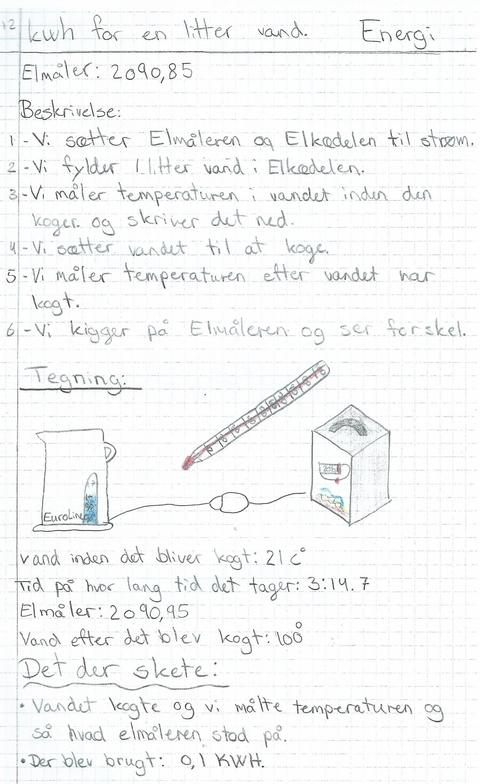 12 kwh for en litter vand. Energi
Elmåler: 2090,85
Beskrivelse:
1 - Vi sætter Elmåleren og Elkedelen til strøm.
2 - Vi fylder 1 litter vand i Elkedelen.
3 - Vi måler temperaturen i vandet inden den
koger. og skriver det ned.
4 - Vi sætter vandet til at koge.
5 - Vi måler temperaturen efter vandet har
kogt.
6 - Vi kigger på Elmåleren og ser forskel.
Tegning:
EuroLine
vand inden det bliver kogt: 21 c°
Tid på hvor lang tid det tager: 3:14.7
Elmåler: 2090,95
Vand efter det blev kogt: 100°
Det der skete:
• Vandet kogte og vi målte temperaturen og
så hvad elmåleren stod på.
• Der blev brugt: 0,1 KWH.